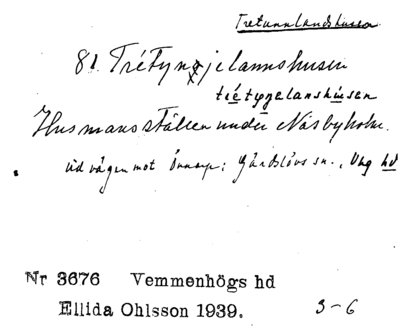 Tretunnlandshusen
81. Trétynnjelannshusin
tiétyngelanshúsen
Husmansställen under Näsbyholm.
vid vägen mot Önnarp; Gärdslövs sn., Vhg hd
Nr 3676 Vemmenhögs hd
Ellida Ohlsson 1939.
3-6